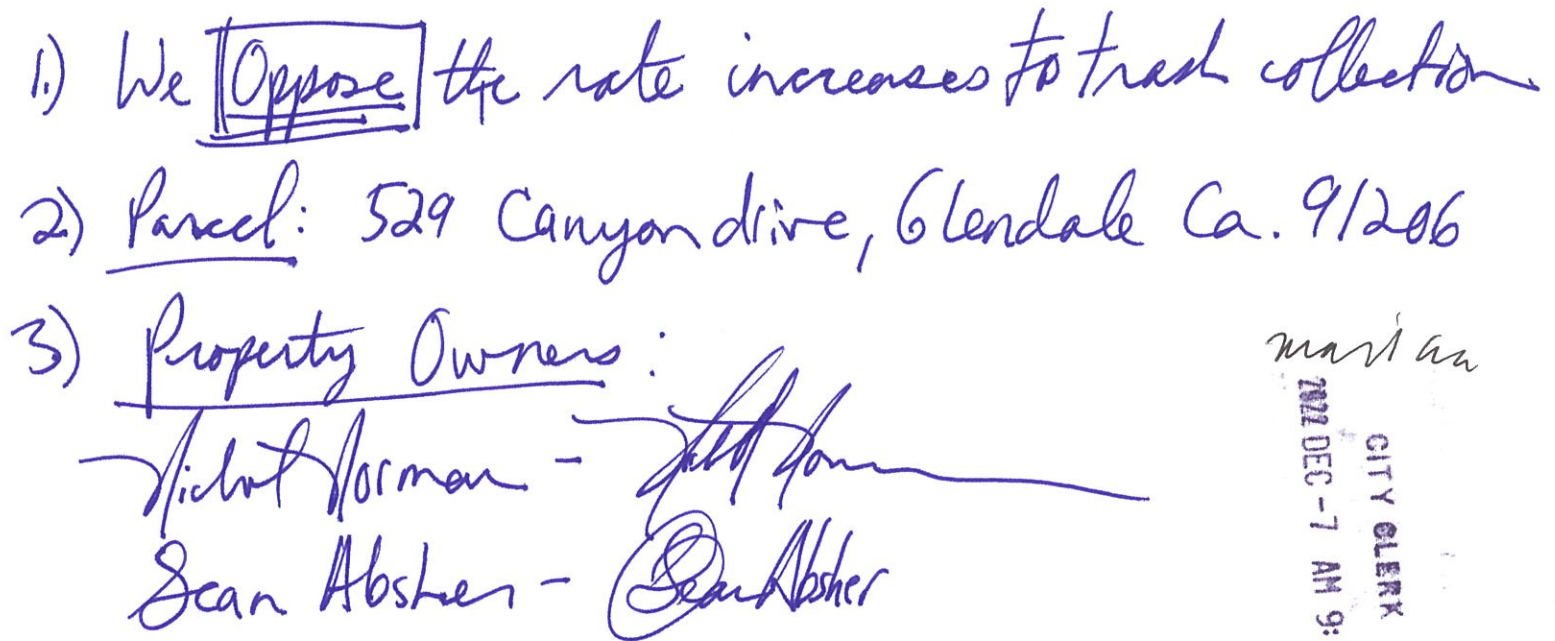 1.) We Oppose the rate increases to trash collection
2.) Parcel: 529 Canyon drive, Glendale Ca. 91206
3) Property Owners:
Norman -
Sean Absher - Sean Absher
CITY CLERK
2022 DEC -7 AM 9: